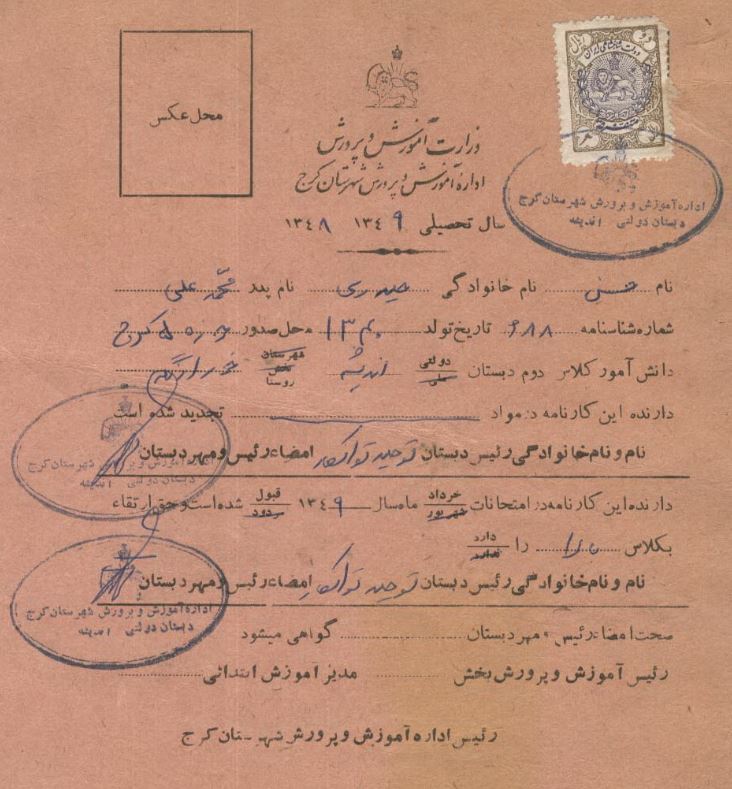 محل عکس
دو ریال
دولت شاهنشاهی ایران
وزارت آموزش و پرورش
اداره آموزش و پرورش شهرستان کرج
اداره آموزش و پرورش شهرستان کرج
دبستان دولتی اندیشه
سال تحصیلی ۱۳٤۹ ۱۳٤۸
نام حسن نام خانوادگی حیدری نام پدر محمد علی
شماره شناسنامه ۶۸۸ تاریخ تولد ۱۳۴۰ محل صدور حوزه ۵ کرج
دانش آموز کلاس دوم دبستان دولتی ملی اندیشه شهرستان بخش روستا
دارنده این کارنامه در مواد تجدید شده است
نام و نام خانوادگی رئیس دبستان توحید امضاء رئیس و مهر دبستان
اداره آموزش و پرورش شهرستان کرج
دبستان دولتی اندیشه
دارنده این کارنامه در امتحانات خرداد شهریور ماه سال ۱۳٤۹ قبول مردود شده است و حق ارتقاء
بکلاس را دارد ندارد
نام و نام خانوادگی رئیس دبستان توحید امضاء رئیس و مهر دبستان
اداره آموزش و پرورش شهرستان کرج
دبستان دولتی اندیشه
صحت امضاء رئیس و مهر دبستان گواهی میشود
رئیس آموزش و پرورش بخش مدیر آموزش ابتدائی
رئیس اداره آموزش و پرورش شهرستان کرج